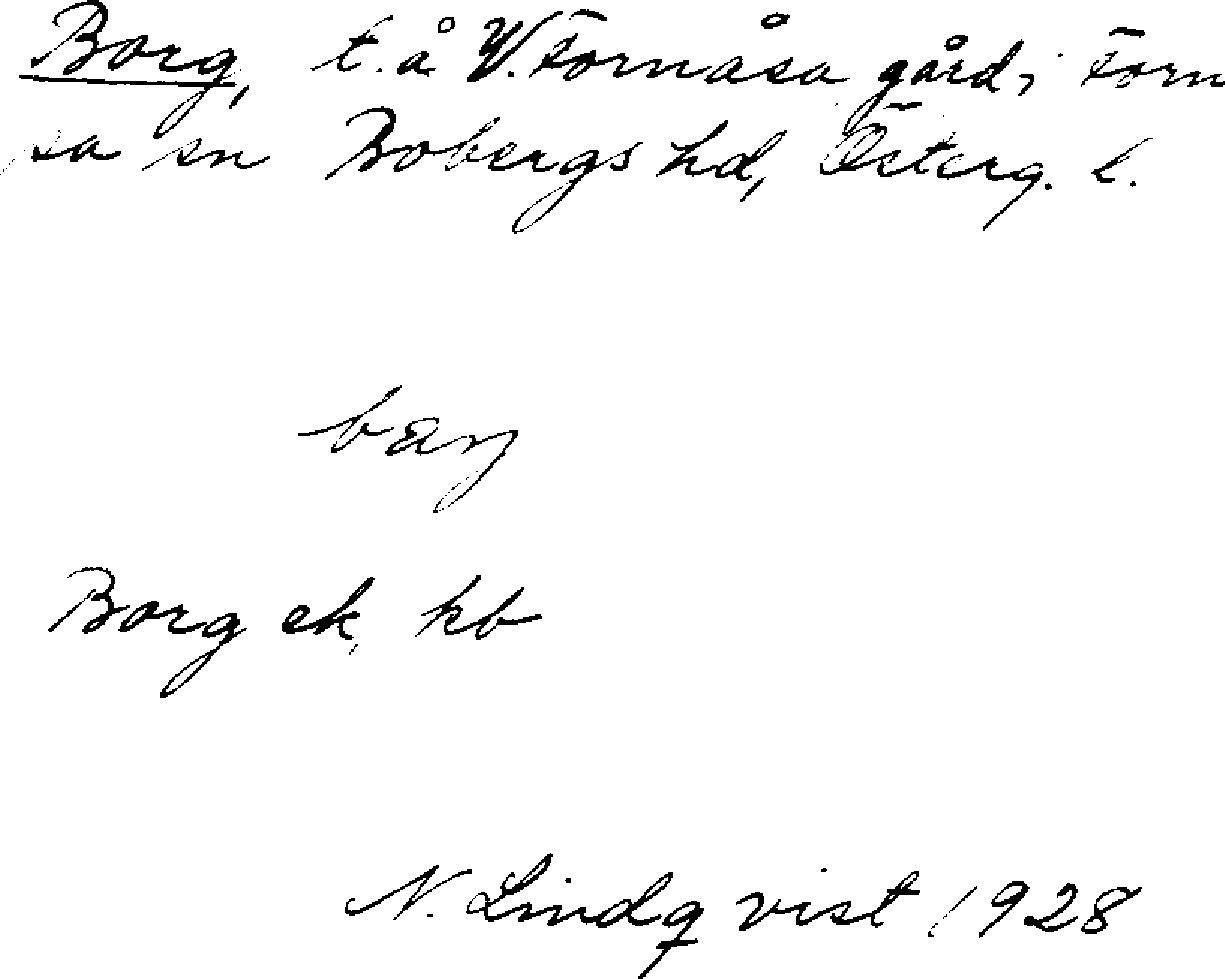 Borg, t. å V. Fornåsa gård, i Forn
sa sn Bobergs hd, Österg. l.
barj
Borg ek. kb
N. Lindqvist 1928